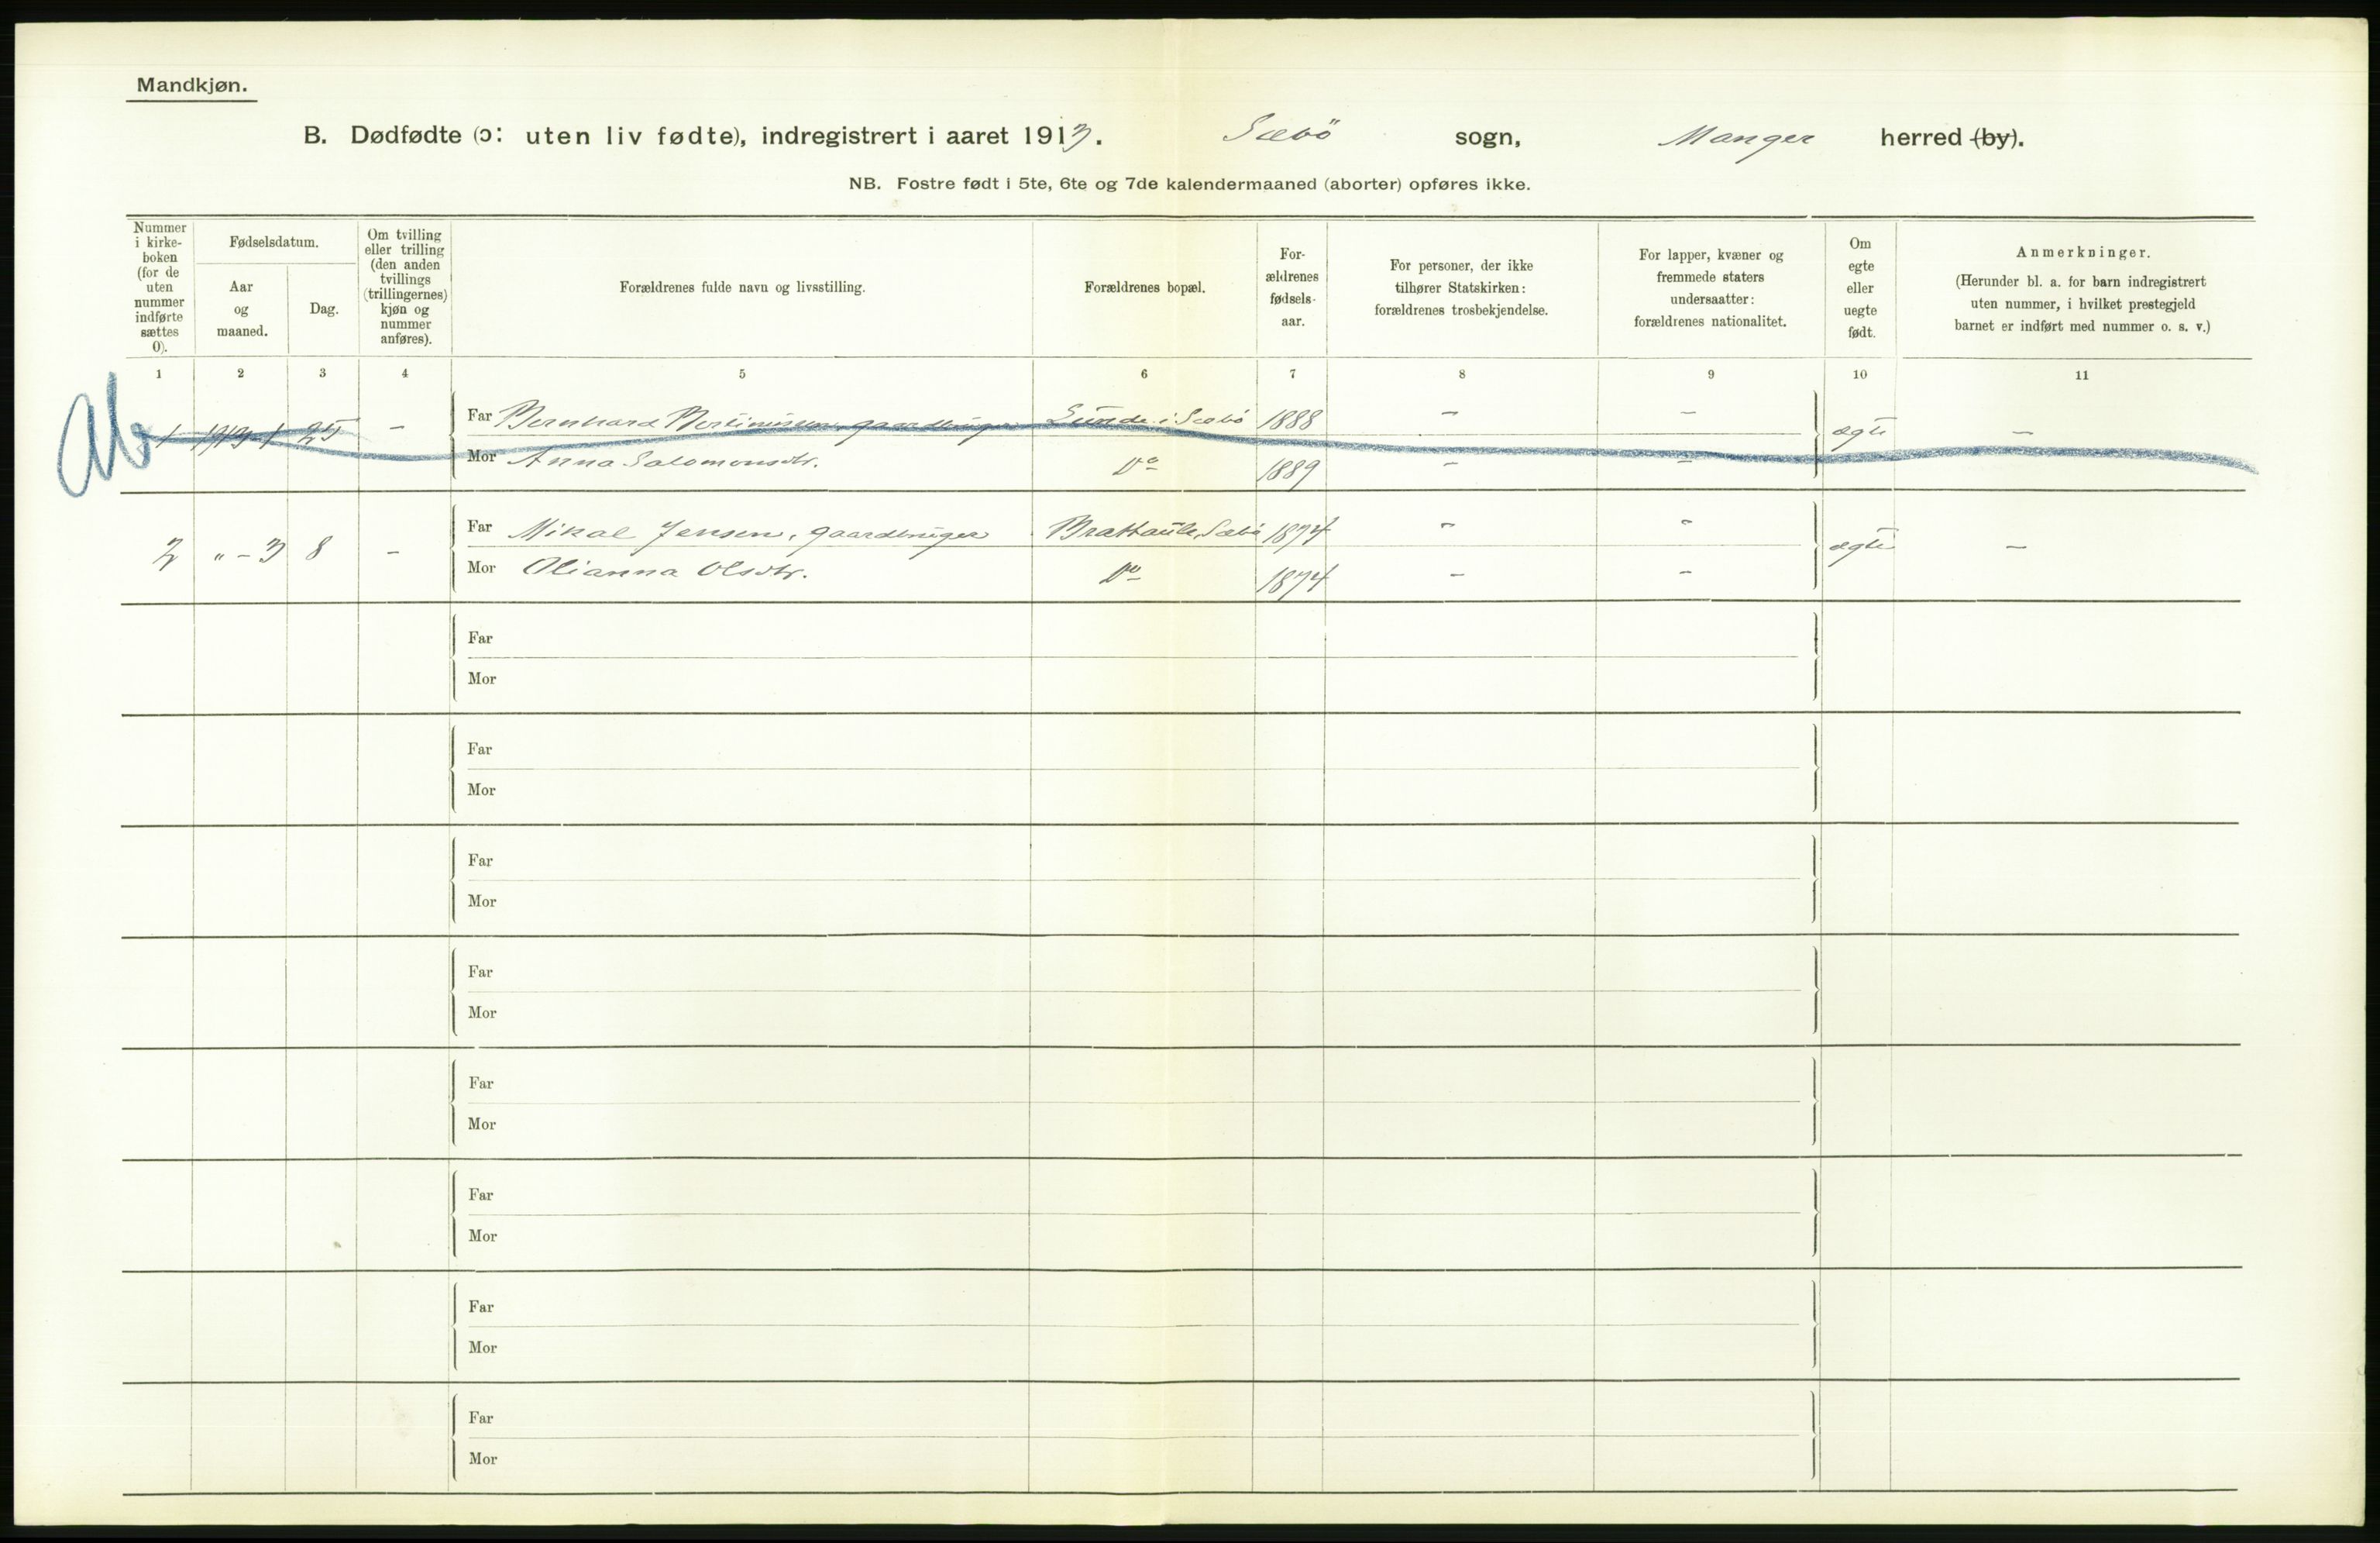 Mandkjøn.
B. Dødfødte (ɔ: uten liv fødte), indregistrert i aaret 1913. Sæbö sogn, Manger herred (by).
NB. Fostre født i 5te, 6te og 7de kalendermaaned (aborter) opføres ikke.
Nummer i kirkeboken (for de uten nummer indførte sættes 0).
Fødselsdatum.
Aar og maaned.
Dag.
Om tvilling eller trilling (den anden tvillings (trillingernes) kjøn og nummer anføres).
Forældrenes fulde navn og livsstilling.
Forældrenes bopæl.
Forældrenes fødselsaar.
For personer, der ikke tilhører Statskirken: forældrenes trosbekjendelse.
For lapper, kvæner og fremmede staters undersaatter: forældrenes nationalitet.
Om egte eller uegte født.
Anmerkninger.
(Herunder bl. a. for barn indregistrert uten nummer, i hvilket prestegjeld barnet er indført med nummer o. s. v.)
1 2 3 4 5 6 7 8 9 10 11
Ab
1 1913-1 25 – Far Bernhard gaardbruger Sunde i Sæbö 1888 – – ægte –
Mor Anna Salomonsdtr. Do 1889 – –
2 " – 3 8 – Far Mikal Jensen, gaardbruger Sæbö 1874 – – ægte –
Mor Olianna Olsdtr. Do 1874 – –
Far
Mor
Far
Mor
Far
Mor
Far
Mor
Far
Mor
Far
Mor
Far
Mor
Far
Mor